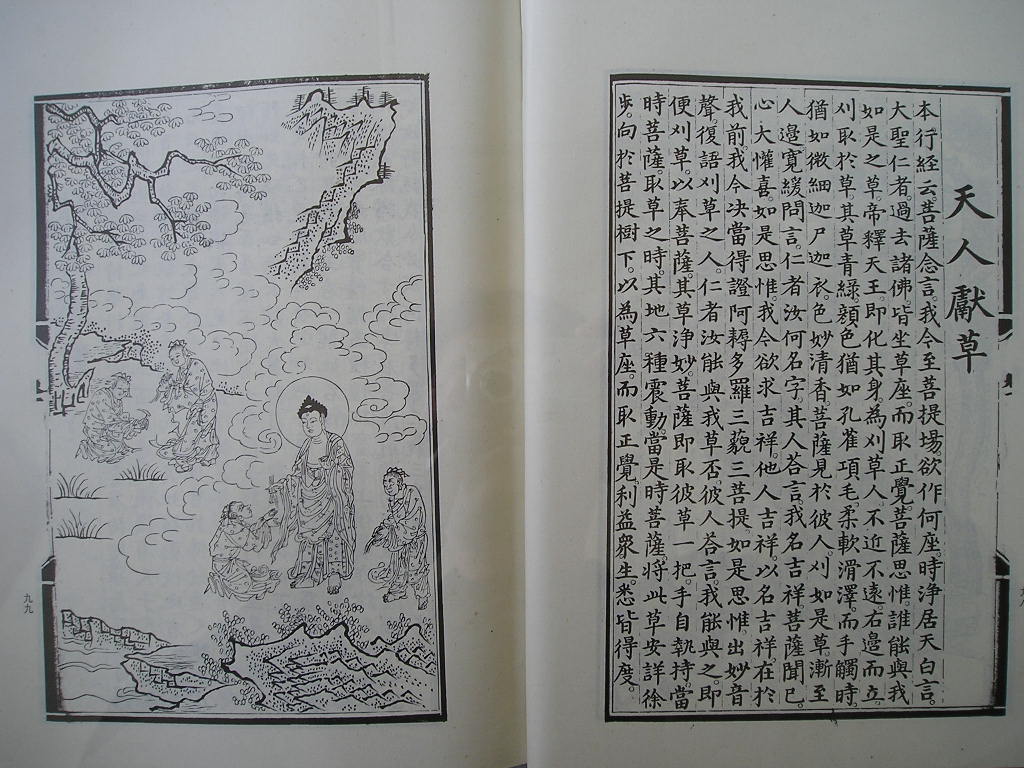 天人獻草
本行經云。菩薩念言。我今至菩提場。欲作何座。時淨居天白言。
大聖仁者。過去諸佛。皆坐草座而取正覺。菩薩思惟。誰能與我
如是之草。帝釋天王。即化其身。為刈草人。不近不遠。右邊而立。
刈取於草。其草青綠。顏色猶如孔雀項毛。柔軟滑澤。而手觸時。
猶如微細迦尸迦衣。色妙清香。菩薩見於彼人。刈如是草。漸至
人邊。寬緩問言。仁者汝何名字。其人答言。我名吉祥。菩薩聞已。
心大懽喜。如是思惟。我今欲求吉祥。他人吉祥。以名吉祥。在於
我前。我今決當得證阿耨多羅三藐三菩提。如是思惟。出妙音
聲。復語刈草之人。仁者汝能與我草否。彼人答言。我能與之。即
便刈草。以奉菩薩。其草淨妙。菩薩即取彼草一把。手自執持。當
時菩薩。取草之時。其地六種震動。當是時菩薩。將此草安詳徐
步。向於菩提樹下。以為草座。而取正覺。利益衆生。悉皆得度。
九九